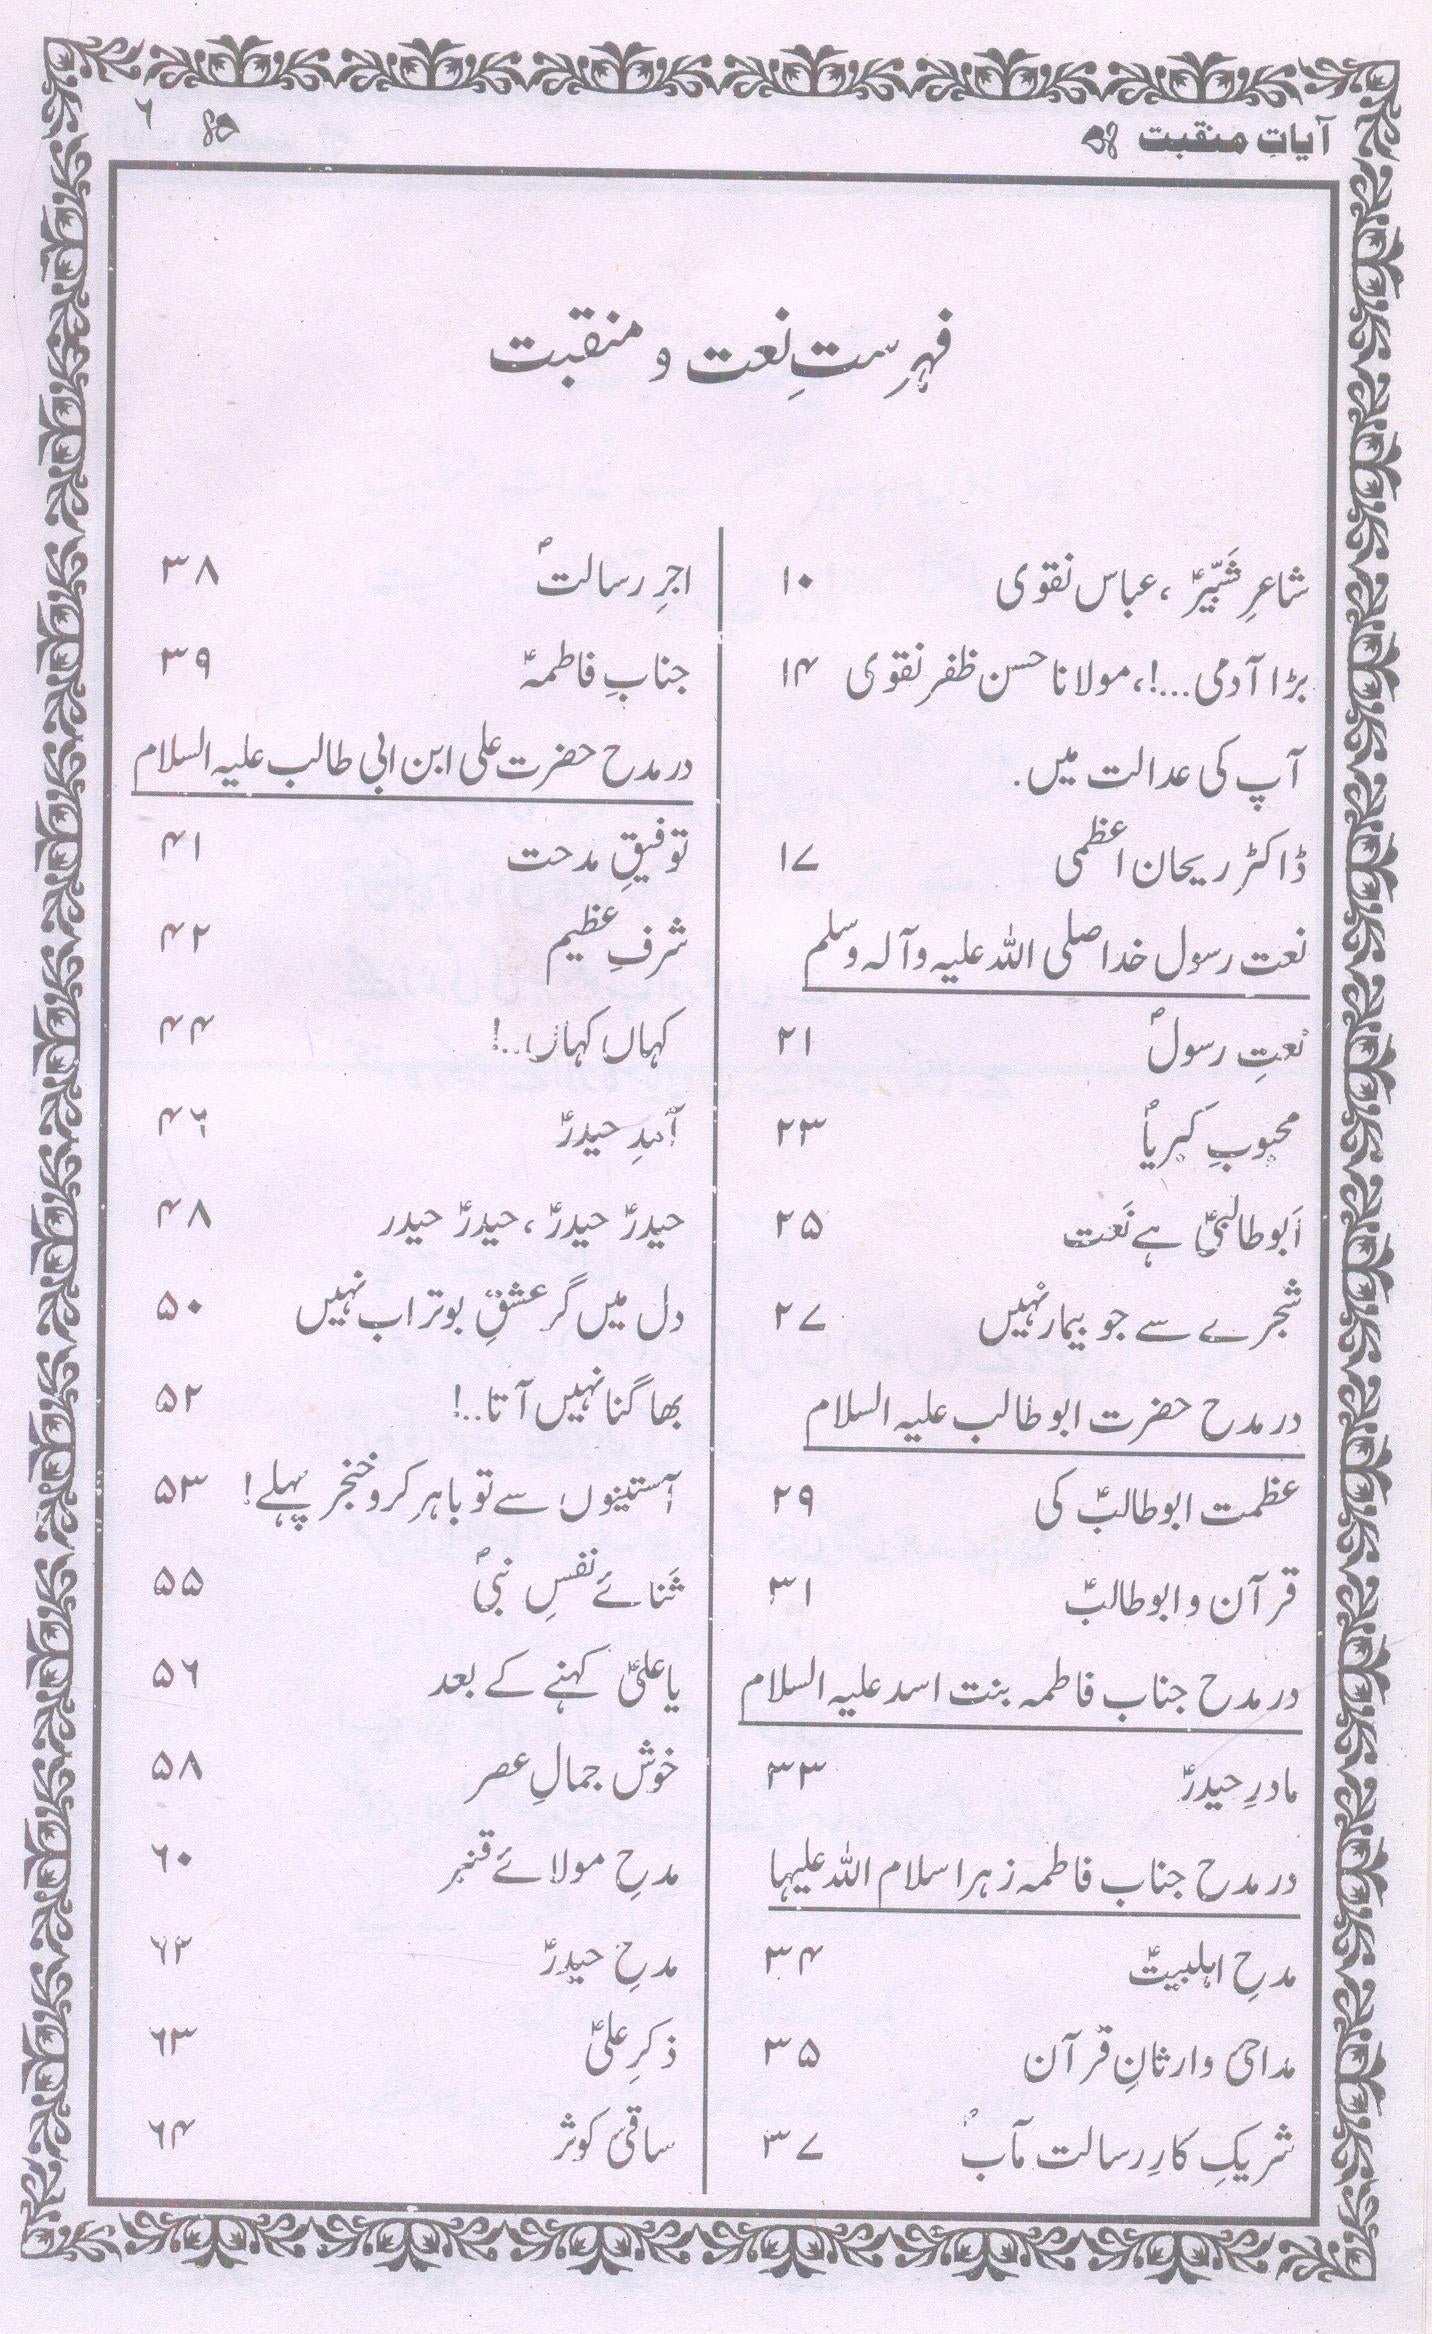 آیاتِ منقبت ۶
فہرستِ نعت و منقبت
شاعرِ شبّیرؑ، عباس نقوی ۱۰
بڑا آدمی...!، مولانا حسن ظفر نقوی ۱۴
آپ کی عدالت میں.
ڈاکٹر ریحان اعظمی ۱۷
نعت رسول خدا صلی اللہ علیہ وآلہ وسلم
نعتِ رسولؐ ۲۱
محبوبِ کبریاؐ ۲۳
اَبو طالبیؑ ہے نَعت ۲۵
شجرے سے جو بیمار نہیں ۲۷
در مدح حضرت ابو طالب علیہ السلام
عظمت ابو طالبؑ کی ۲۹
قرآن و ابو طالبؑ ۳۱
در مدح جناب فاطمہ بنت اسد علیہ السلام
مادرِ حیدرؑ ۳۳
در مدح جناب فاطمہ زہرا سلام اللہ علیہا
مدحِ اہلبیتؑ ۳۴
مداحیٔ وارثانِ قرآن ۳۵
شریکِ کارِ رسالت مآبؐ ۳۷
اجرِ رسالتؐ ۳۸
جنابِ فاطمہؑ ۳۹
در مدح حضرت علی ابن ابی طالب علیہ السلام
توفیقِ مدحت ۴۱
شرفِ عظیم ۴۲
کہاں کہاں..! ۴۴
آمدِ حیدرؑ ۴۶
حیدرؑ حیدرؑ، حیدرؑ حیدر ۴۸
دل میں گر عشقِ بوتراب نہیں ۵۰
بھاگنا نہیں آتا..! ۵۲
آستینوں سے تو باہر کرو خنجر پہلے! ۵۳
ثنائے نفسِ نبیؐ ۵۵
یا علیؑ کہنے کے بعد ۵۶
خوش جمالِ عصر ۵۸
مدحِ مولائے قنبر ۶۰
مدحِ حیدرؑ ۶۲
ذکرِ علیؑ ۶۳
ساقیٔ کوثر ۶۴